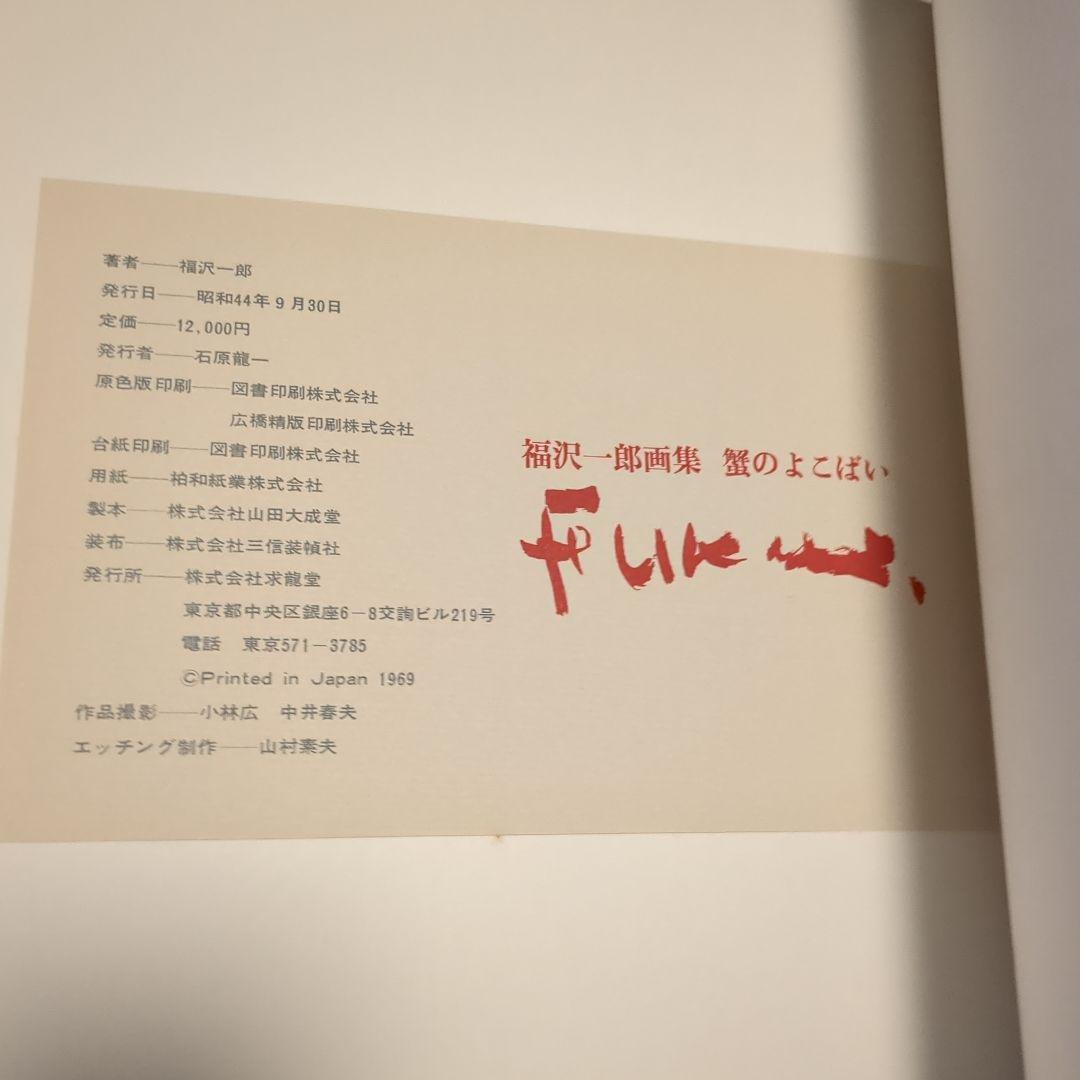 著者――福沢一郎
発行日――昭和44年9月30日
定価――12,000円
発行者――石原龍一
原色版印刷――図書印刷株式会社
広橋精版印刷株式会社
台紙印刷――図書印刷株式会社
用紙――柏和紙業株式会社
製本――株式会社山田大成堂
装布――株式会社三信装幀社
発行所――株式会社求龍堂
東京都中央区銀座6-8交詢ビル219号
電話 東京571-3785
©Printed in Japan 1969
作品撮影――小林広 中井春夫
エッチング制作――山村素夫
福沢一郎画集 蟹のよこばい